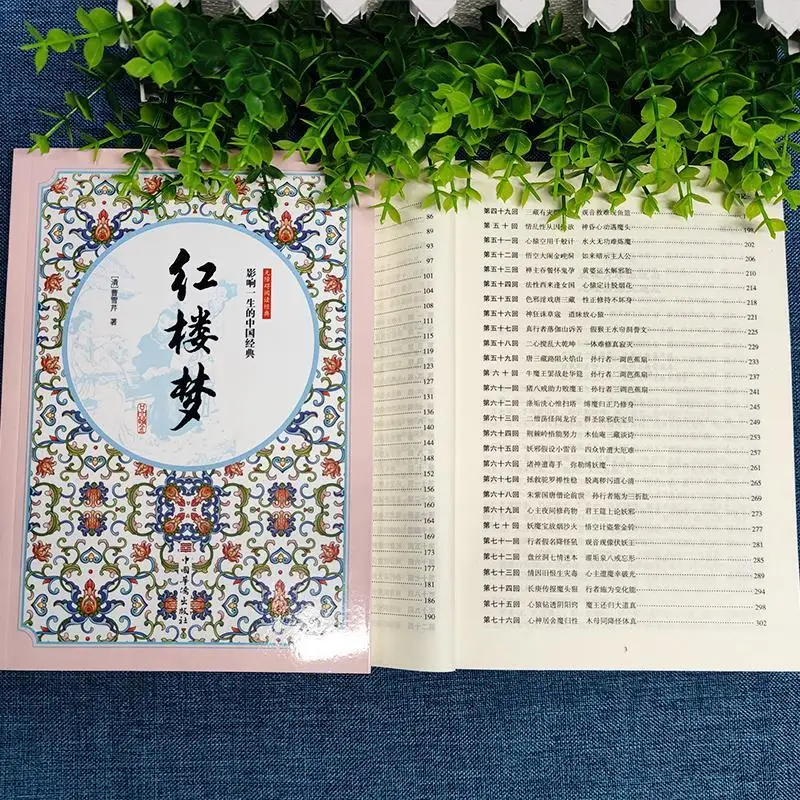 红楼梦
[清]曹雪芹 著
无障碍阅读经典
影响一生的中国经典
中国华侨出版社
86
89
93
97
101
104
108
111
115
119
123
127
130
133
137
141
144
150
154
160
164
169
173
177
181
186
190
第四十九回 三藏有灾 观音救难现鱼篮 198
第五十回 情乱性从因爱欲 神昏心动遇魔头 202
第五十一回 心猿空用千般计 水火无功难炼魔 206
第五十二回 悟空大闹金𫠆洞 如来暗示主人公 210
第五十三回 禅主吞餐怀鬼孕 黄婆运水解邪胎 214
第五十四回 法性西来逢女国 心猿定计脱烟花 218
第五十五回 色邪淫戏唐三藏 性正修持不坏身 221
第五十六回 神狂诛草寇 道昧放心猿 225
第五十七回 真行者落伽山诉苦 假猴王水帘洞誊文 229
第五十八回 二心搅乱大乾坤 一体难修真寂灭 232
第五十九回 唐三藏路阻火焰山 孙行者一调芭蕉扇 235
第六十回 牛魔王罢战赴华筵 孙行者二调芭蕉扇 239
第六十一回 猪八戒助力败魔王 孙行者三调芭蕉扇 242
第六十二回 涤垢洗心惟扫塔 缚魔归正乃修身 245
第六十三回 二僧荡怪闹龙宫 群圣除邪获宝贝 249
第六十四回 荆棘岭悟能努力 木仙庵三藏谈诗 253
第六十五回 妖邪假设小雷音 四众皆遭大厄难 257
第六十六回 诸神遭毒手 弥勒缚妖魔 261
第六十七回 拯救驼罗禅性稳 脱离秽污道心清 265
第六十八回 朱紫国唐僧论前世 孙行者施为三折肱 269
第六十九回 心主夜间修药物 君王筵上论妖邪 273
第七十回 妖魔宝放烟沙火 悟空计盗紫金铃 277
第七十一回 行者假名降怪犼 观音现像伏妖王 281
第七十二回 盘丝洞七情迷本 濯垢泉八戒忘形 285
第七十三回 情因旧恨生灾毒 心主遭魔幸破光 289
第七十四回 长庚传报魔头狠 行者施为变化能 294
第七十五回 心猿钻透阴阳窍 魔王还归大道真 298
第七十六回 心神居舍魔归性 木母同降怪体真 302
3